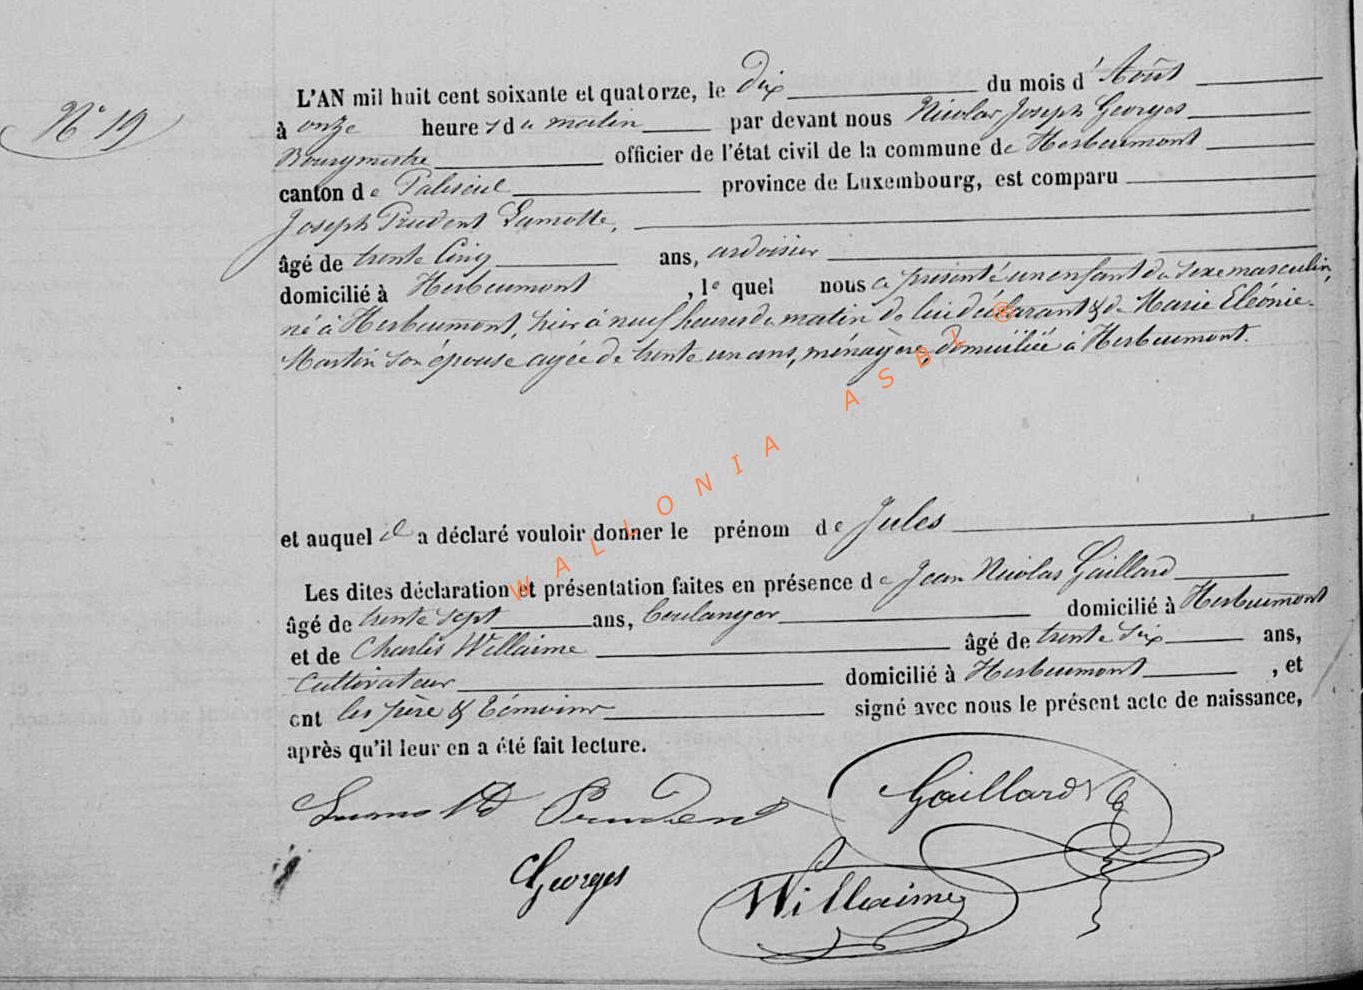 N° 19
L'AN mil huit cent soixante et quatorze, le dix du mois d'Août
à onze heures du matin par devant nous Nicolas Joseph Georges
Bourgmestre officier de l'état civil de la commune de Herbeumont
canton de Paliseul province de Luxembourg, est comparu
Joseph Prudent Lamotte,
âgé de trente cinq ans, ardoisier
domicilié à Herbeumont, lequel nous a présenté un enfant du sexe masculin,
né à Herbeumont, hier à neuf heures du matin de lui déclarant & de Marie Eléonie
Martin son épouse agée de trente un ans, ménagère, domiciliée à Herbeumont.
et auquel il a déclaré vouloir donner le prénom de Jules
Les dites déclaration et présentation faites en présence de Jean Nicolas Gaillard
âgé de trente sept ans, boulanger domicilié à Herbeumont
et de Charles Willaime âgé de trente six ans,
Cultivateur domicilié à Herbeumont, et
ont les père & témoins signé avec nous le présent acte de naissance,
après qu'il leur en a été fait lecture.
Prudent Gaillard
Georges Willaime
WALLONIA ASBL ®